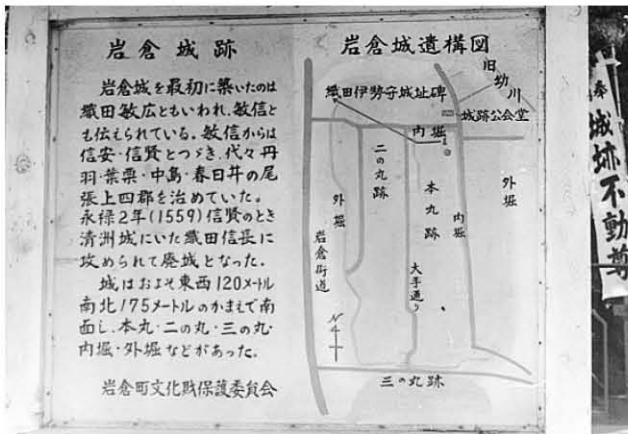 岩倉城跡
岩倉城を最初に築いたのは
織田敏広ともいわれ、敏信と
も伝えられている。敏信からは
信安・信賢とつゞき、代々丹
羽・葉栗・中島・春日井の尾
張上四郡を治めていた。
永禄2年(1559)信賢のとき
清洲城にいた織田信長に
攻められて廃城となった。
城はおよそ東西120メートル
南北175メートルのかまえで南
面し、本丸・二の丸・三の丸・
内堀・外堀などがあった。
岩倉町文化財保護委員会
岩倉城遺構図
旧幼川
織田伊勢守城址碑
城跡公会堂
内堀
二の丸跡
本丸跡
内堀
外堀
外堀
岩倉街道
大手通り
N
三の丸跡
奉
城跡不動尊